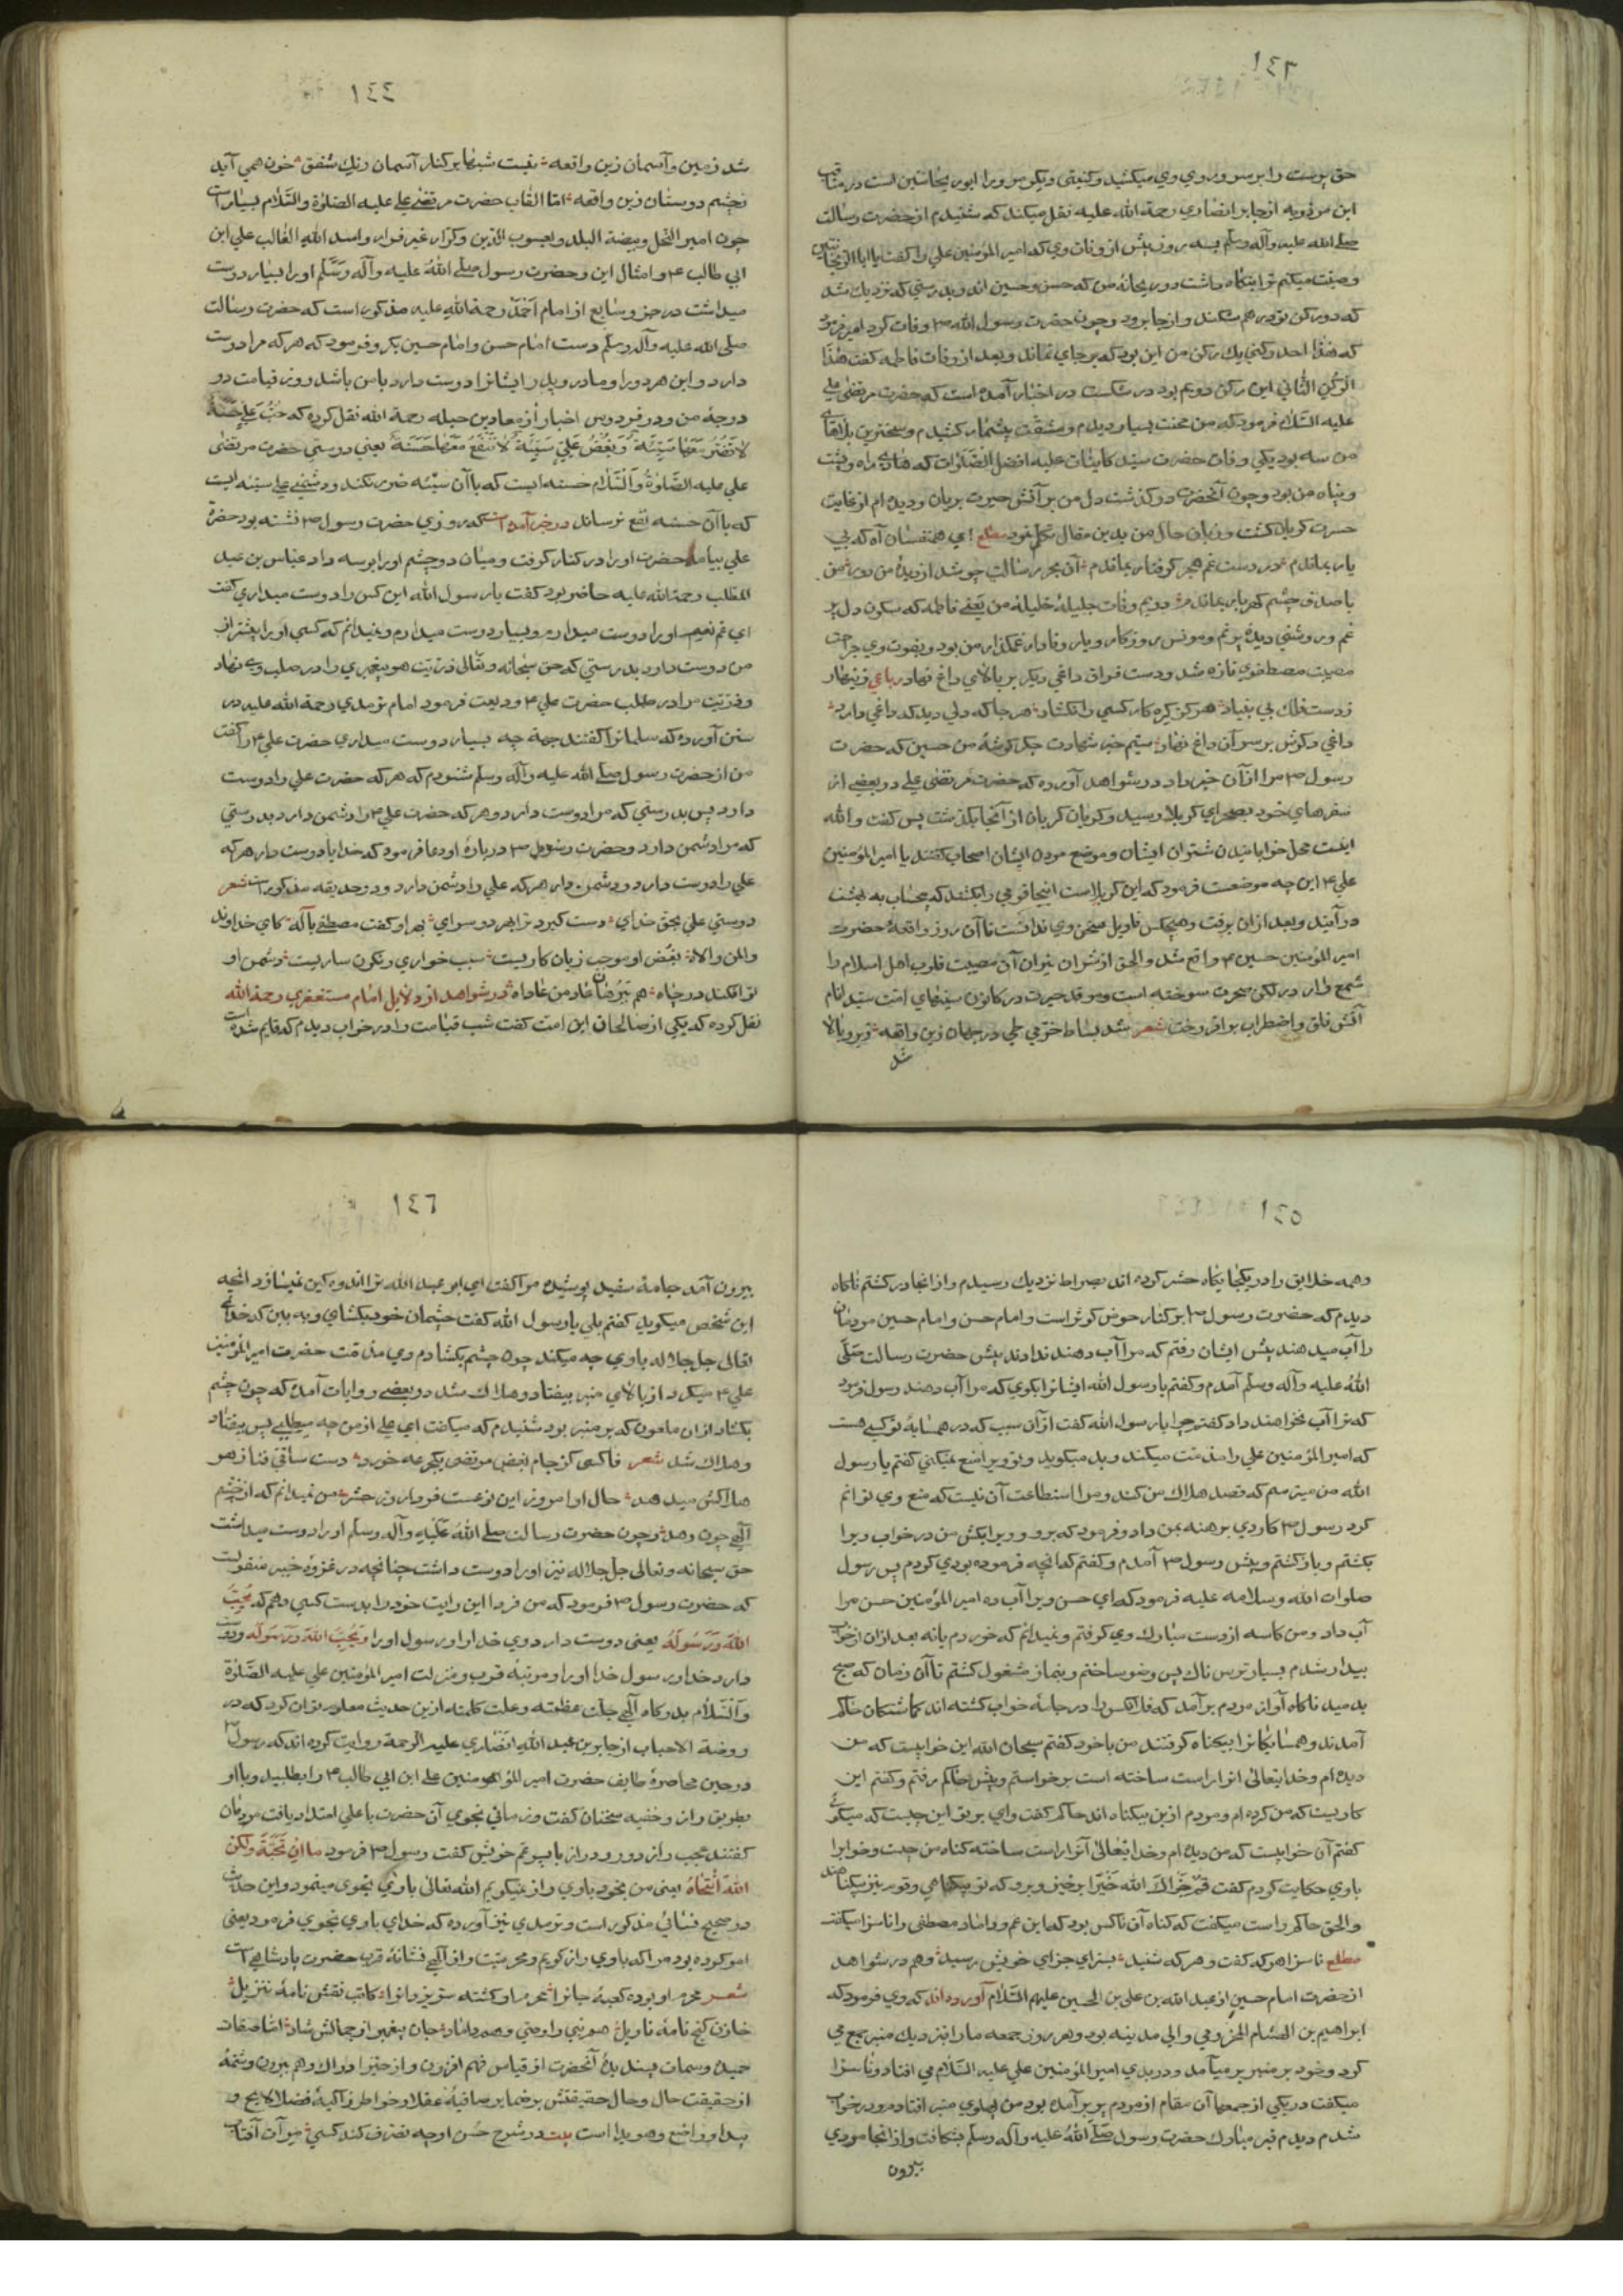 حق پرست را بر سر و روی وی میکشید و کنیتی دیگر مر ویرا ابو ریحانتین است در مناقب
ابن مردویه از جابر انصاری رحمة الله علیه نقل میکند که شنیدم از حضرت رسالت
صلی الله علیه وآله وسلم بسه روز پیش از وفات وی که امیر المؤمنین علی را کفت یا ابا الریحانتین
وصیت میکنم ترا بنکاه داشت دو ریحانهٔ من که حسن و حسین اند و بدرستی که نزدیك شد
که دو رکن تو در هم شکند و از جا برود و چون حضرت رسول الله ۳ وفات کرد امیر فرمود
که هذا احد رکنی یك رکن من این بود که بر جای نماند و بعد از وفات فاطمه کفت هذا
الرکن الثانی این رکن دویم بود در شکست در اخبار آمده است که حضرت مرتضی علی
علیه السلام فرمود که من محنت بسیار دیدم و مشقت بیشمار کشیدم و سختترین بلاهای
من سه بود یکی وفات حضرت سید کاینات علیه افضل الصلوات که هادی راه و پشت
و پناه من بود و چون آنحضرت در کذشت دل من بر آتش حیرت بریان و دیده ام از غایت
حسرت کریان کشت و زبان حال من بدین مقال تکلم نمود مطلع ای همنفسان آه که بی
یار بماندم در دست غم هجر کرفتار بماندم آن بحر رسالت چو شد از دیدهٔ من دور من
با صدف چشم کهربار بماندم دویم وفات جلیلهٔ خلیلهٔ من یعنی فاطمه که سکون دل پر
غم و روشنی دیدهٔ پر نم و مونس روزکار و یار وفادار غمکذار من بود و بفوت وی جراحت
مصیبت مصطفوی تازه شد و دست فراق داغی دیکر بر بالای داغ نهاد رباعی زینهار
ز دست فلك بی بنیاد هرکز کره کار کسی را نکشاد هر جا که دلی دید که داغی دارد
داغی دکرش بر سر آن داغ نهاد سیم خبر شهادت جکر کوشهٔ من حسین که حضرت
رسول ۳ مرا از آن خبر داد در شواهد آورده که حضرت مرتضی علی در بعضی از
سفرهای خود بصحرای کربلا رسید و کریان کریان از آنجا بکذشت پس کفت والله
اینست محل خوابانیدن شتران ایشان و موضع مردن ایشان اصحاب کفتند یا امیر المؤمنین
علی ۴ این چه موضعست فرمود که این کربلاست اینجا قومی را بکشند که بیحساب به بهشت
در آیند و بعد از آن برفت و هیچکس تاویل سخن وی ندانست تا آن روز واقعهٔ حضرت
امیر المؤمنین حسین ۴ واقع شد والحق از شرار نیران آن مصیبت قلوب اهل اسلام را
شمع وار در لکن محرت سوخته است و موقد حیرت در کانون سینهای امت سید انام
آتش قلق و اضطراب بر افروخت شعر شد بساط خرمی طی در جهان زین واقعه زیر و بالا
شد
١٤٤
شد زمین و آسمان زین واقعه نیست شبها بر کنار آسمان رنك شفق خون همی آید
بچشم دوستان زین واقعه اما القاب حضرت مرتضی علی علیه الصلوة والسلام بسیار است
چون امیر النحل وبیضة البلد ویعسوب الدین و کرار غیر فرار واسد الله الغالب علی ابن
ابی طالب ۴ و امثال این و حضرت رسول صلی الله علیه وآله وسلم او را بسیار دوست
میداشت در جزو سابع از امام احمد رحمة الله علیه مذکور است که حضرت رسالت
صلی الله علیه وآله وسلم دست امام حسن و امام حسین بکرفت و فرمود که هر که مرا دوست
دارد و این هر دو را و مادر و پدر ایشانرا دوست دارد با من باشد روز قیامت در
درجهٔ من و در فردوس اخبار از معاذ بن جبله رحمة الله نقل کرده که حب علی حسنة
لا تضر معها سیئة وبغض علی سیئة لا تنفع معها حسنة یعنی دوستی حضرت مرتضی
علی علیه الصلوة والسلام حسنه ایست که با آن سیئه ضرر نکند و دشمنی علی سیئه ایست
که با آن حسنه نفع نرساند در خبر آمده است که روزی حضرت رسول ۳ نشسته بود حضرت
علی بیامد حضرت او را در کنار کرفت و میان دو چشم او را بوسه داد عباس بن عبد
المطلب رحمة الله علیه حاضر بود کفت یا رسول الله این کس را دوست میداری کفت
ای عم نعم او را دوست میدارم و بسیار دوست میدارم و نمیدانم که کسی او را بیشتر از
من دوست دارد بدرستی که حق سبحانه و تعالی ذریت هر پیغمبری را در صلب وی نهاد
و ذریت مرا در صلب حضرت علی ۴ ودیعت فرمود امام ترمدی رحمة الله علیه در
سنن آورده که سلمانرا کفتند جهة چه بسیار دوست میداری حضرت علی ۴ را کفت
من از حضرت رسول صلی الله علیه وآله وسلم شنودم که هر که حضرت علی را دوست
دارد پس بدرستی که مرا دوست دارد و هر که حضرت علی ۴ را دشمن دارد بدرستی
که مرا دشمن دارد و حضرت رسول ۳ در بارهٔ او دعا فرمود که خدایا دوست دار هر که
علی را دوست دارد و دشمن دار هر که علی را دشمن دارد و در حدیقه مذکور است شعر
دوستی علی بحق خدای دست کیرد ترا بهر دو سرای بهر او کفت مصطفی باله کای خداوند
وال من والاه بغض او موجب زیان کاریست سبب خواری و نکون ساریست دشمن او
تو افکند در چاه هم بترضان عاد من عاداه در شواهد از دلایل امام مستغفری رحمة الله
نقل کرده که یکی از صالحان این امت کفت شب قیامت را در خواب دیدم که قایم شده است
١٤٥
و همه خلایق را در یکجایکاه حشر کرده اند بصراط نزدیك رسیدم و از آنجا در کشتم ناکاه
دیدم که حضرت رسول ۳ بر کنار حوض کوثر است و امام حسن و امام حسین مردمان
را آب میدهند پیش ایشان رفتم که مرا آب دهند ندادند پیش حضرت رسالت صلی
الله علیه وآله وسلم آمدم و کفتم یا رسول الله ایشانرا بکوی که مرا آب دهند رسول فرمود
که ترا آب نخواهند داد کفتم چرا یا رسول الله کفت از آن سبب که در همسایهٔ تو کسی هست
که امیر المؤمنین علی را مذمت میکند و بد میکوید و تو ویرا منع نمیکنی کفتم یا رسول
الله من میترسم که قصد هلاك من کند و مرا استطاعت آن نیست که منع وی توانم
کرد رسول ۳ کاردی برهنه بمن داد و فرمود که برو و ویرا بکش من در خواب ویرا
بکشتم و باز کشتم و پیش رسول ۳ آمدم و کفتم که آنچه فرموده بودی کردم پس رسول
صلوات الله وسلامه علیه فرمود که ای حسن ویرا آب ده امیر المؤمنین حسن مرا
آب داد و من کاسه از دست مبارك وی کرفتم و نمیدانم که خوردم یا نه بعد از آن از خواب
بیدار شدم بسیار ترس ناك پس وضو ساختم و بنماز مشغول کشتم تا آن زمان که صبح
بدمید ناکاه آواز مردم بر آمد که فلانکس را در جامه خواب کشته اند کماشتکان حاکم
آمدند و همسایکانرا بیکناه کرفتند من با خود کفتم سبحان الله این خوابیست که من
دیده ام و خدایتعالی آنرا راست ساخته است برخواستم و پیش حاکم رفتم و کفتم این
کاریست که من کرده ام و مردم ازین بیکناه اند حاکم کفت وای بر تو این چیست که میکوئی
کفتم آن خوابیست که من دیده ام و خدایتعالی آنرا راست ساخته کناه من چیست و خوابرا
با وی حکایت کردم کفت قم جزاك الله خیرا برخیز و برو که تو بیکناهی و قوم نیز بیکناهند
والحق حاکم راست میکفت که کناه آن ناکس بود که ابن عم و داماد مصطفی را ناسزا میکفت
مطلع ناسزا هر که کفت و هر که شنید بسزای جزای خویش رسید و هم در شواهد
از حضرت امام حسین از عبد الله بن علی بن الحسین علیهم السلام آورده اند که وی فرمود که
ابراهیم بن الهشام المخزومی والی مدینه بود و هر روز جمعه ما را نزدیك منبر جمع می
کرد و خود بر منبر بر میآمد و در بدی امیر المؤمنین علی علیه السلام می افتاد و ناسزا
میکفت در یکی از جمعها آن مقام از مردم پر بر آمده بود من پهلوی منبر افتادم و در خواب
شدم دیدم قبر مبارك حضرت رسول صلی الله علیه وآله وسلم بشکافت و از آنجا مردی
بیرون
١٤٦
بیرون آمد جامهٔ سفید پوشیده مرا کفت ای ابو عبد الله ترا اندوهکین نمیسازد آنچه
این شخص میکوید کفتم بلی یا رسول الله کفت چشمان خود بکشای و به بین که خدای
تعالی جل جلاله با وی چه میکند چون چشم بکشادم وی مذمت حضرت امیر المؤمنین
علی ۴ میکرد از بالای منبر بیفتاد و هلاك شد در بعضی روایات آمده که چون چشم
بکشاد از آن ملعون که بر منبر بود شنیدم که میکفت ای علی از من چه میطلبی پس بیفتاد
و هلاك شد شعر ناکسی کز جام بغض مرتضی یکجرعه خورد دست ساقی فنا زهر
هلاکش میدهد حال او امروز این نوعست فردا روز حشر من نمیدانم که از خشم
آلهی چون رهد و چون حضرت رسالت صلی الله علیه وآله وسلم او را دوست میداشت
حق سبحانه و تعالی جل جلاله نیز او را دوست داشت چنانچه در غزوهٔ خیبر منقولست
که حضرت رسول ۳ فرمود که من فردا این رایت خود را بدست کسی دهم که یحب
الله ورسوله یعنی دوست دارد وی خدا را و رسول او را و یحب الله ورسوله و دوست
دارد خدا و رسول خدا او را و مرتبهٔ قرب و منزلت امیر المؤمنین علی علیه الصلوة
والسلام بدرکاه آلهی جلت عظمته وعلت کلمته ازین حدیث معلوم توان کرد که در
روضة الاحباب از جابر بن عبد الله انصاری علیه الرحمة روایت کرده اند که رسول ۳
در حین محاصرهٔ طایف حضرت امیر المؤمنین علی ابن ابی طالب ۴ را بطلبید و با او
بطریق راز و خفیه سخنان کفت و زمانی نجوی آن حضرت با علی امتداد یافت مردمان
کفتند عجب راز دور و دراز با پسر عم خویش کفت رسول ۳ فرمود ما انتجیته ولکن
الله انتجاه یعنی من بخود با وی راز نمیکویم الله تعالی با وی نجوی مینمود و این حدیث
در صحیح نسائی مذکور است و ترمدی نیز آورده که خدای با وی نجوی فرمود یعنی
امر کرده بود مرا که با وی راز کویم و محرمیت راز آلهی نشانهٔ قرب حضرت پادشاهی است
شعر محرم او بوده کعبهٔ جانرا محرم او کشته ستر یزدانرا کاتب نقش نامهٔ تنزیل
خازن کنج نامهٔ تاویل هم نبی را وصی و هم داماد جان پیغمبر از جمالش شاد اما صفات
حمیده و سمات پسندیدهٔ آنحضرت از قیاس فهم افزون و از حیز ادراك و هم بیرون و شمهٔ
از حقیقت حال و حال حقیقتش بر ضمایر صافیهٔ عقلا و خواطر زاکیهٔ فضلا لایح و
پیدا و واضح و هویدا است بیت در شرح حسن او چه تصرف کند کسی مر آن آفتاب